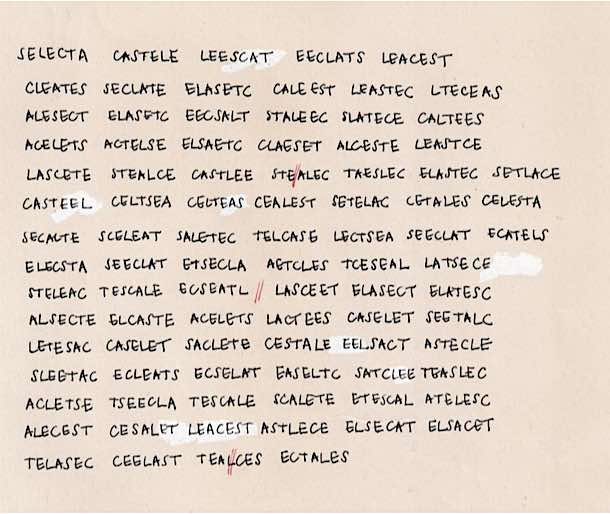 SELECTA CASTELE LEESCAT EECLATS LEACEST
CLEATES SECLATE ELASETC CALEEST LEASTEC LTECEAS
ALESECT ELASETC EECSALT STALEEC SLATECE CALTEES
ACELETS ACTELSE ELSAETC CLAESET ALCESTE LEASTCE
LASCETE STEALCE CASTLEE STEALEC TAESLEC ELASTEC SETLACE
CASTEEL CELTSEA CELTEAS CEALEST SETELAC CETALES CELESTA
SECALTE SCELEAT SALETEC TELCASE LECTSEA SEECLAT ECATELS
ELECSTA SEECLAT ETSECLA AETCLES TCESEAL LATSECE
STELEAC TESCALE ECSEATL LASCEET ELASECT ELATESC
ALSECTE ELCASTE ACELETS LACTEES CASELET SEETALC
LETESAC CASELET SACLETE CESTALE EELSACT ASTECLE
SLEETAC ECLEATS ECSELAT EASELTC SATCLEE TEASLEC
ACLETSE TSEECLA TESCALE SCALETE ETESCAL ATELESC
ALECEST CESALET LEACEST ASTLECE ELSECAT ELSACET
TELASEC CEELAST TEALCES ECTALES